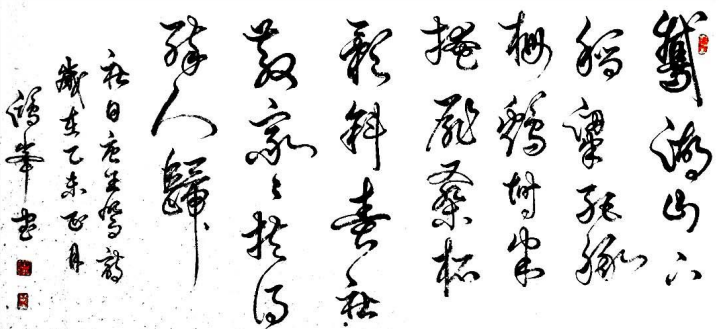 鵝湖山下
稻粱肥豚
栅鷄塒半
掩扉桑柘
影斜春社
散家〻扶得
醉人歸
社日唐王駕詩
歲在乙未正月
書